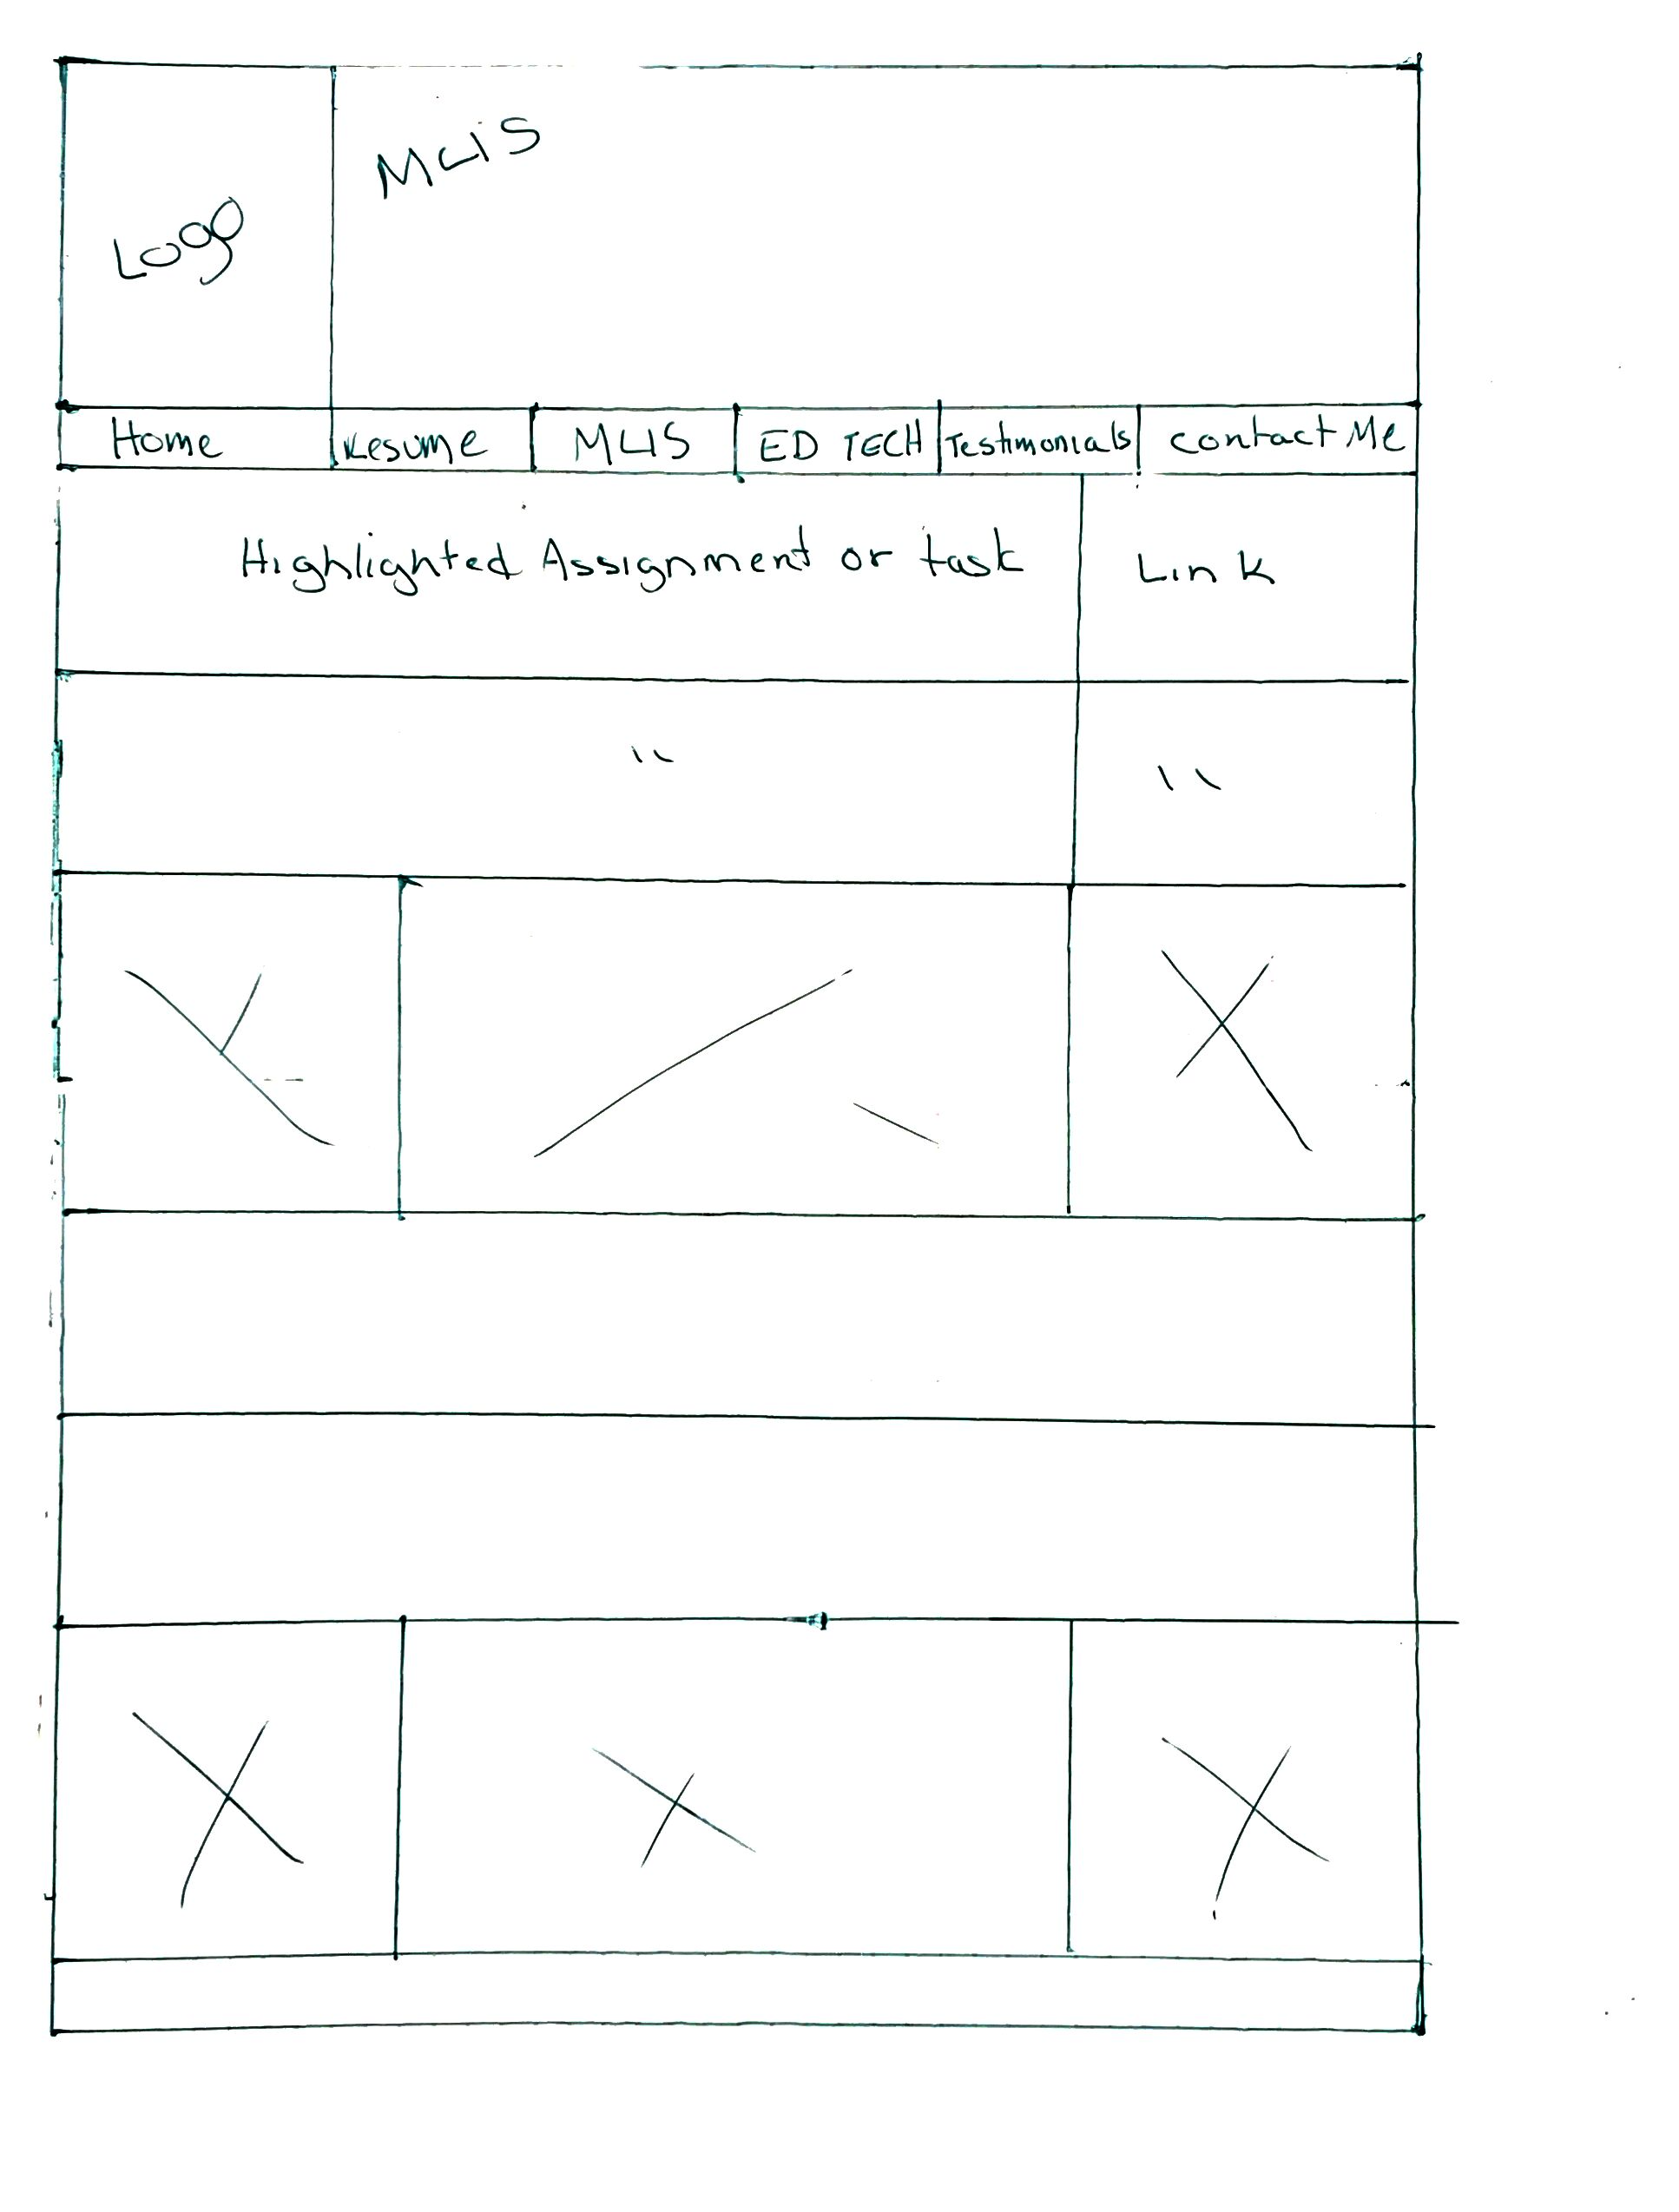 MLIS
Logo
Home Resume MLIS ED TECH Testimonials Contact Me
Highlighted Assignment or task Link
" "